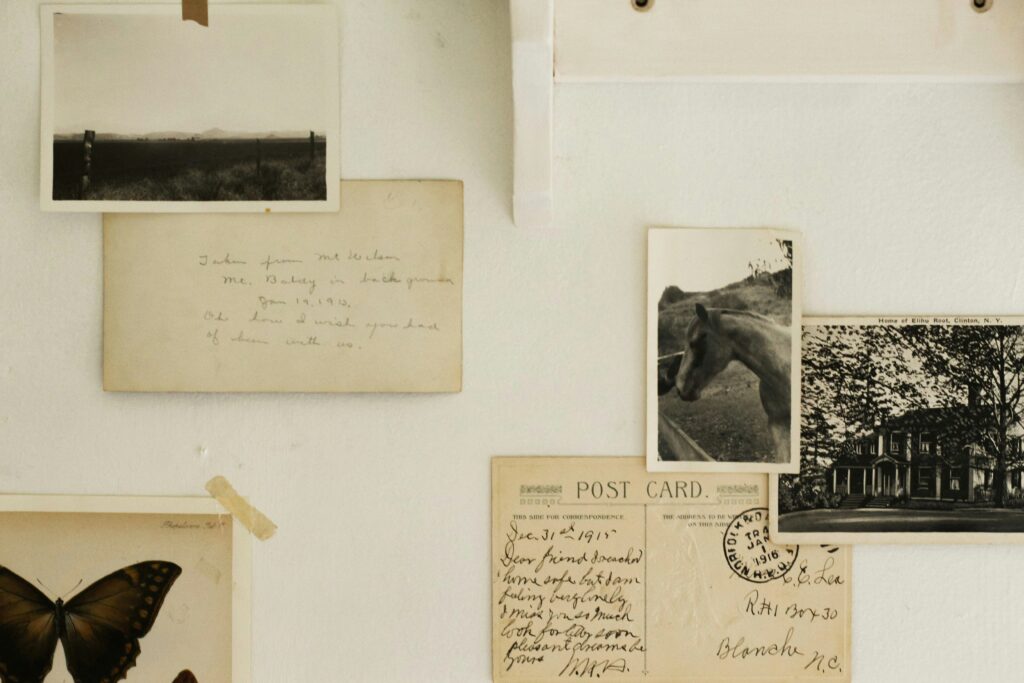 Taken from Mt Wilson
Mt. Baldy in background
Jan 19, 1913.
Oh how I wish you had
of been with us.
Home of Elihu Root, Clinton, N. Y.
POST CARD.
THIS SIDE FOR CORRESPONDENCE
THE ADDRESS TO BE
ON THIS SIDE
Dec. 31st 1915
Dear friend I reached
home safe but I am
feeling very lonely
I miss you so much
look for
pleasant dreams be
yours
NORFOLK
JAN
1
1916
C. E. Lea
R#1 Box 30
Blanche
N.C.